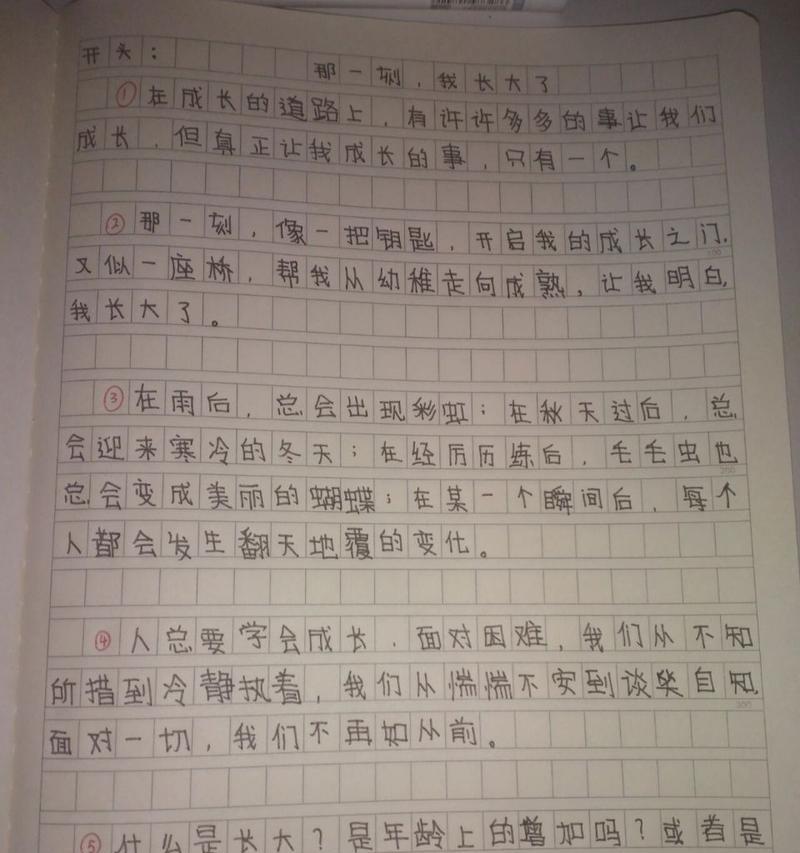 开头：
那一刻，我长大了
①在成长的道路上，有许许多多的事让我们
成长，但真正让我成长的事，只有一个。
②那一刻，像一把钥匙，开启我的成长之门，
又似一座桥，帮我从幼稚走向成熟，让我明白，
我长大了。
③在雨后，总会出现彩虹；在秋天过后，总
会迎来寒冷的冬天；在经历历练后，毛毛虫也
总会变成美丽的蝴蝶；在某一个瞬间后，每个
人都会发生翻天地覆的变化。
④人总要学会成长．面对困难，我们从不知
所措到冷静执着，我们从惴惴不安到谈笑自知，
面对一切，我们不再如从前。
⑤什么是长大？是年龄上的增加吗？或者是